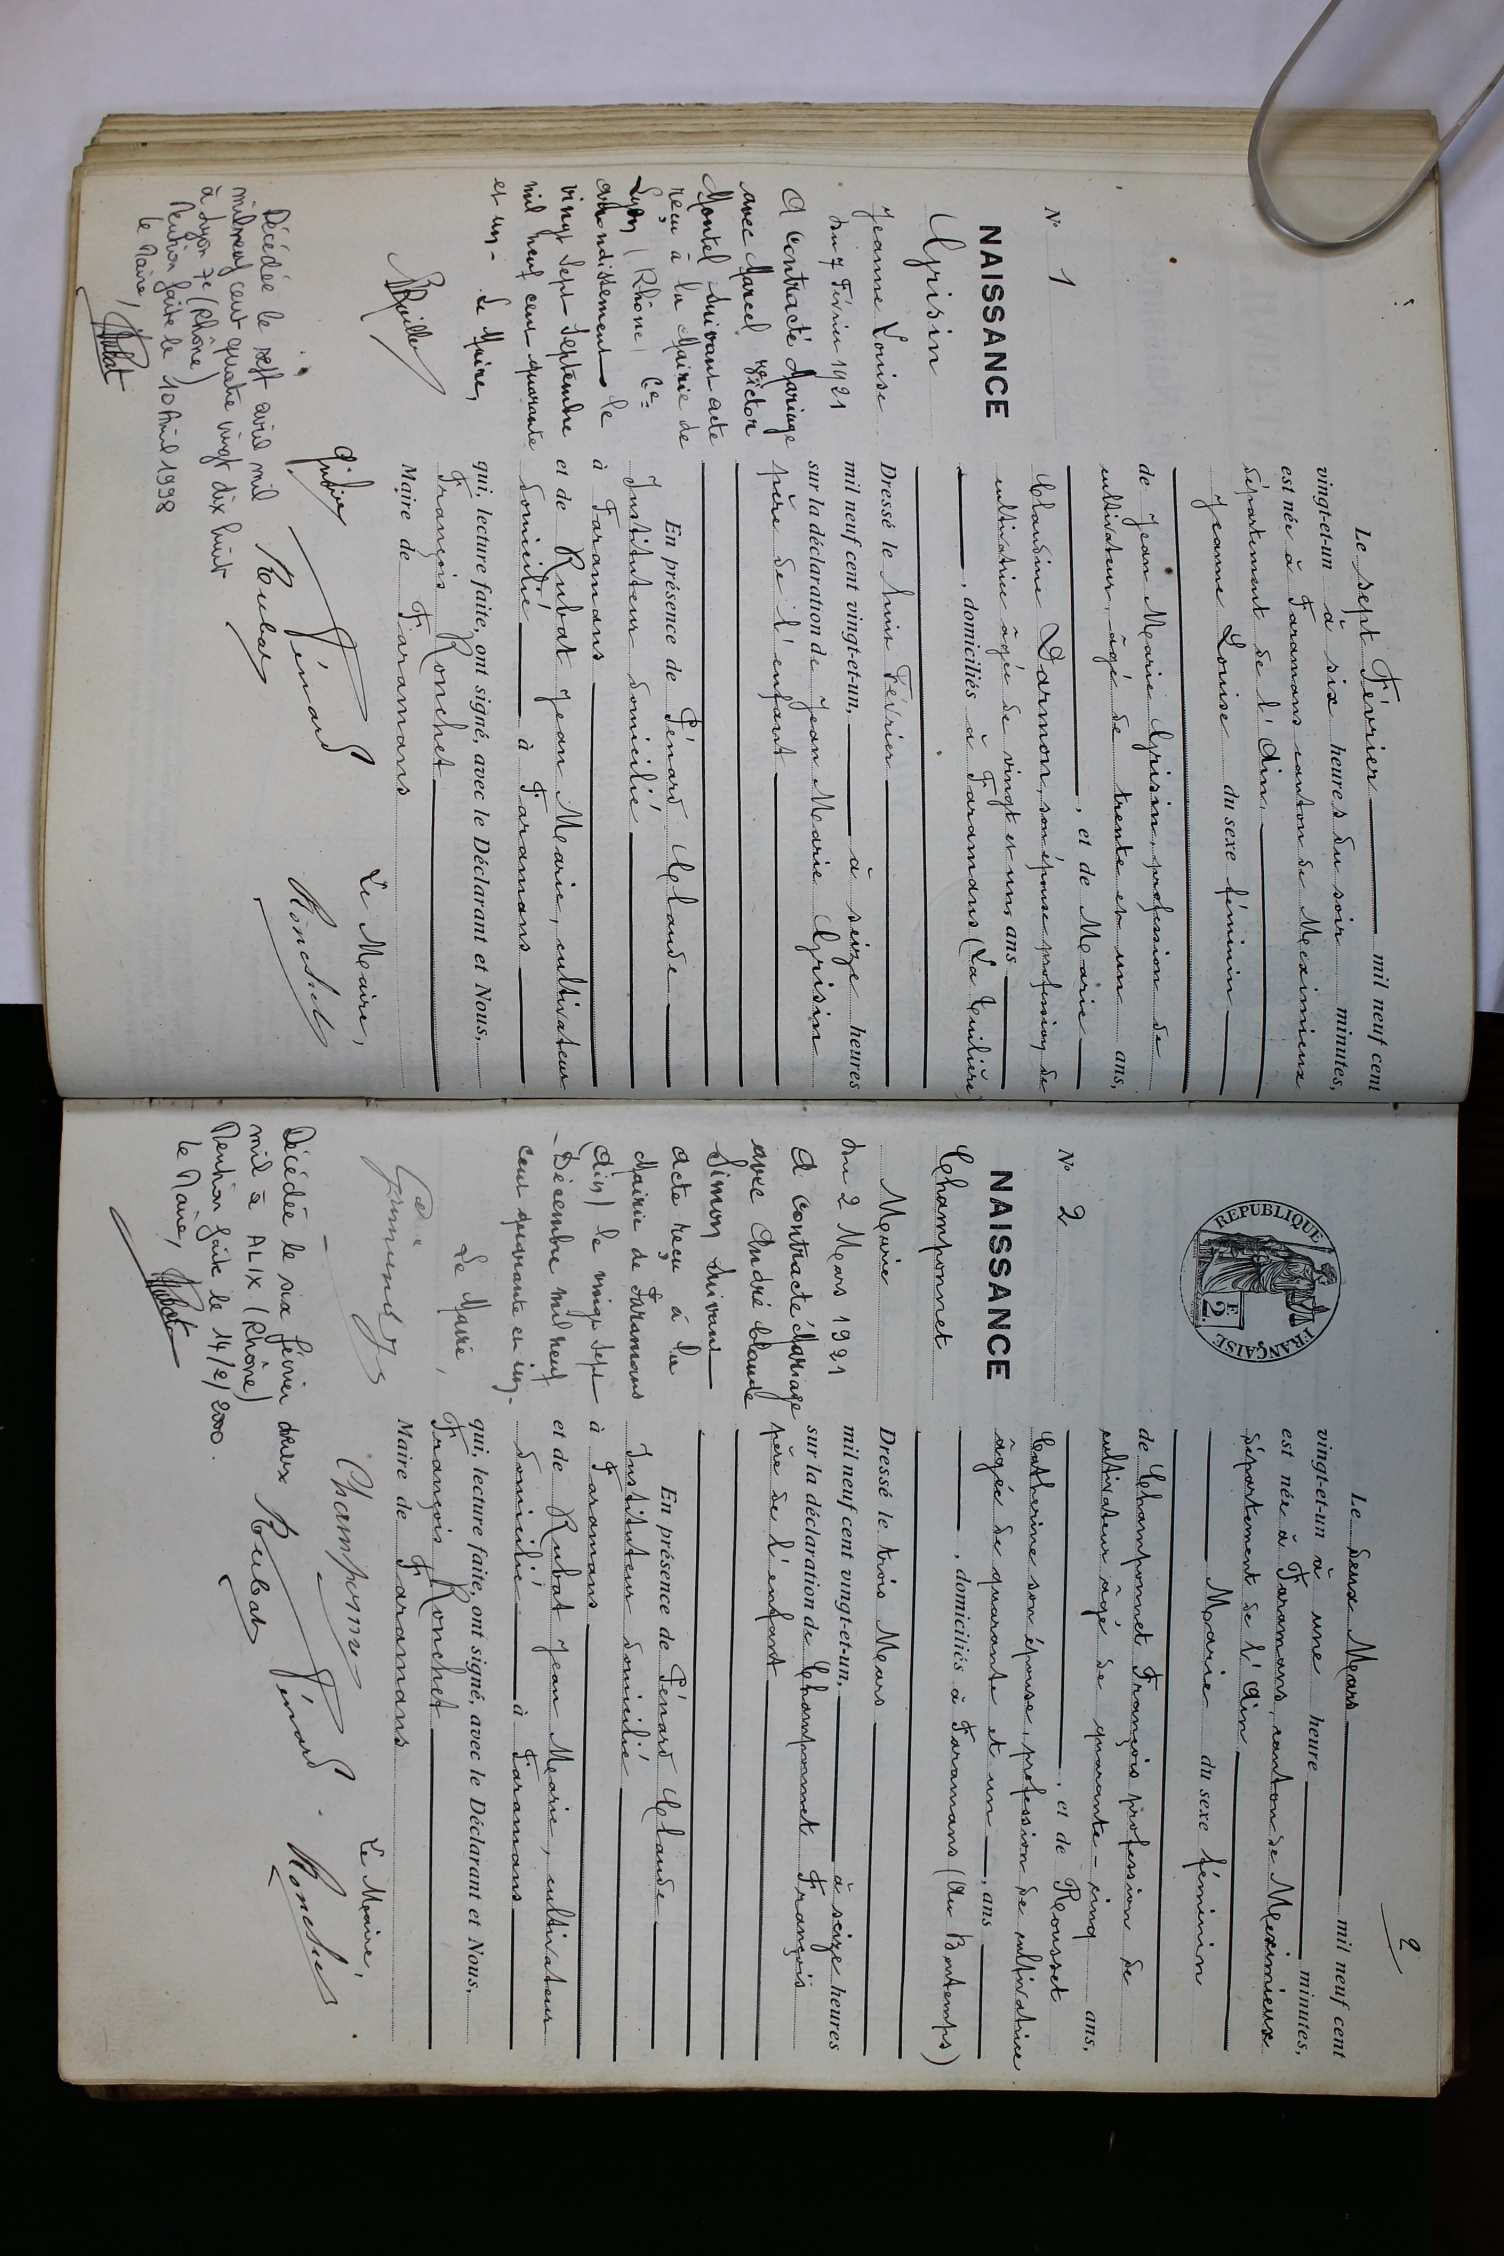 N° 1
NAISSANCE
Grisin
Jeanne Louise
du 7 Février 1921
A contracté Mariage
avec Marcel Victor
Montel suivant acte
reçu à la Mairie de
Lyon (Rhône)
arrondissement le
vingt sept Septembre
mil neuf cent quarante
et un - Le Maire,
Décédée le sept avril mil
mil neuf cent quatre vingt dix huit
à Lyon 7e (Rhône)
Mention faite le 10 Avril 1998
le Maire,
Le sept Février mil neuf cent
vingt-et-un à six heures du soir minutes,
est née à Faramans canton de Meximieux
département de l'Ain
Jeanne Louise du sexe féminin
de Jean Marie Grisin, profession de
cultivateur, âgé de trente et un ans,
, et de Marie
Claudine Darmon, son épouse profession de
cultivatrice âgée de vingt et un, ans
, domiciliés à Faramans (La Tuilière)
Dressé le huit Février
mil neuf cent vingt-et-un, à seize heures
sur la déclaration de Jean Marie Grisin
père de l'enfant
En présence de Pénard Claude
Instituteur domicilié
à Faramans
et de Rubat Jean Marie, cultivateur
domicilié à Faramans
qui, lecture faite, ont signé, avec le Déclarant et Nous,
François Ronchet
Maire de Faramans
Le Maire,
Grisin Pénard Ronchet
Rubat
2
REPUBLIQUE FRANÇAISE
2 F.
N° 2
NAISSANCE
Champonnet
Marie
du 2 Mars 1921
A contracté Mariage
avec André Claude
Simon suivant
acte reçu à la
Mairie de Faramans
(Ain) le vingt sept
Décembre mil neuf
cent quarante et un.
Le Maire,
Décédée le six février deux
mil à ALIX (Rhône)
Mention faite le 14/2/2000.
le Maire,
Le deux Mars mil neuf cent
vingt-et-un à une heure minutes,
est née à Faramans, canton de Meximieux
département de l'Ain
Marie du sexe féminin
de Champonnet François profession de
cultivateur âgé de quarante-cinq ans,
, et de Rousset
Catherine son épouse, profession de cultivatrice
âgée de quarante et un , ans
, domiciliés à Faramans (Au Bontemps)
Dressé le trois Mars
mil neuf cent vingt-et-un, à seize heures
sur la déclaration de Champonnet François
père de l'enfant
En présence de Pénard Claude
Instituteur domicilié
à Faramans
et de Rubat Jean Marie, cultivateur
domicilié à Faramans
qui, lecture faite, ont signé, avec le Déclarant et Nous,
François Ronchet
Maire de Faramans
Le Maire,
Pénard Ronchet
Rubat